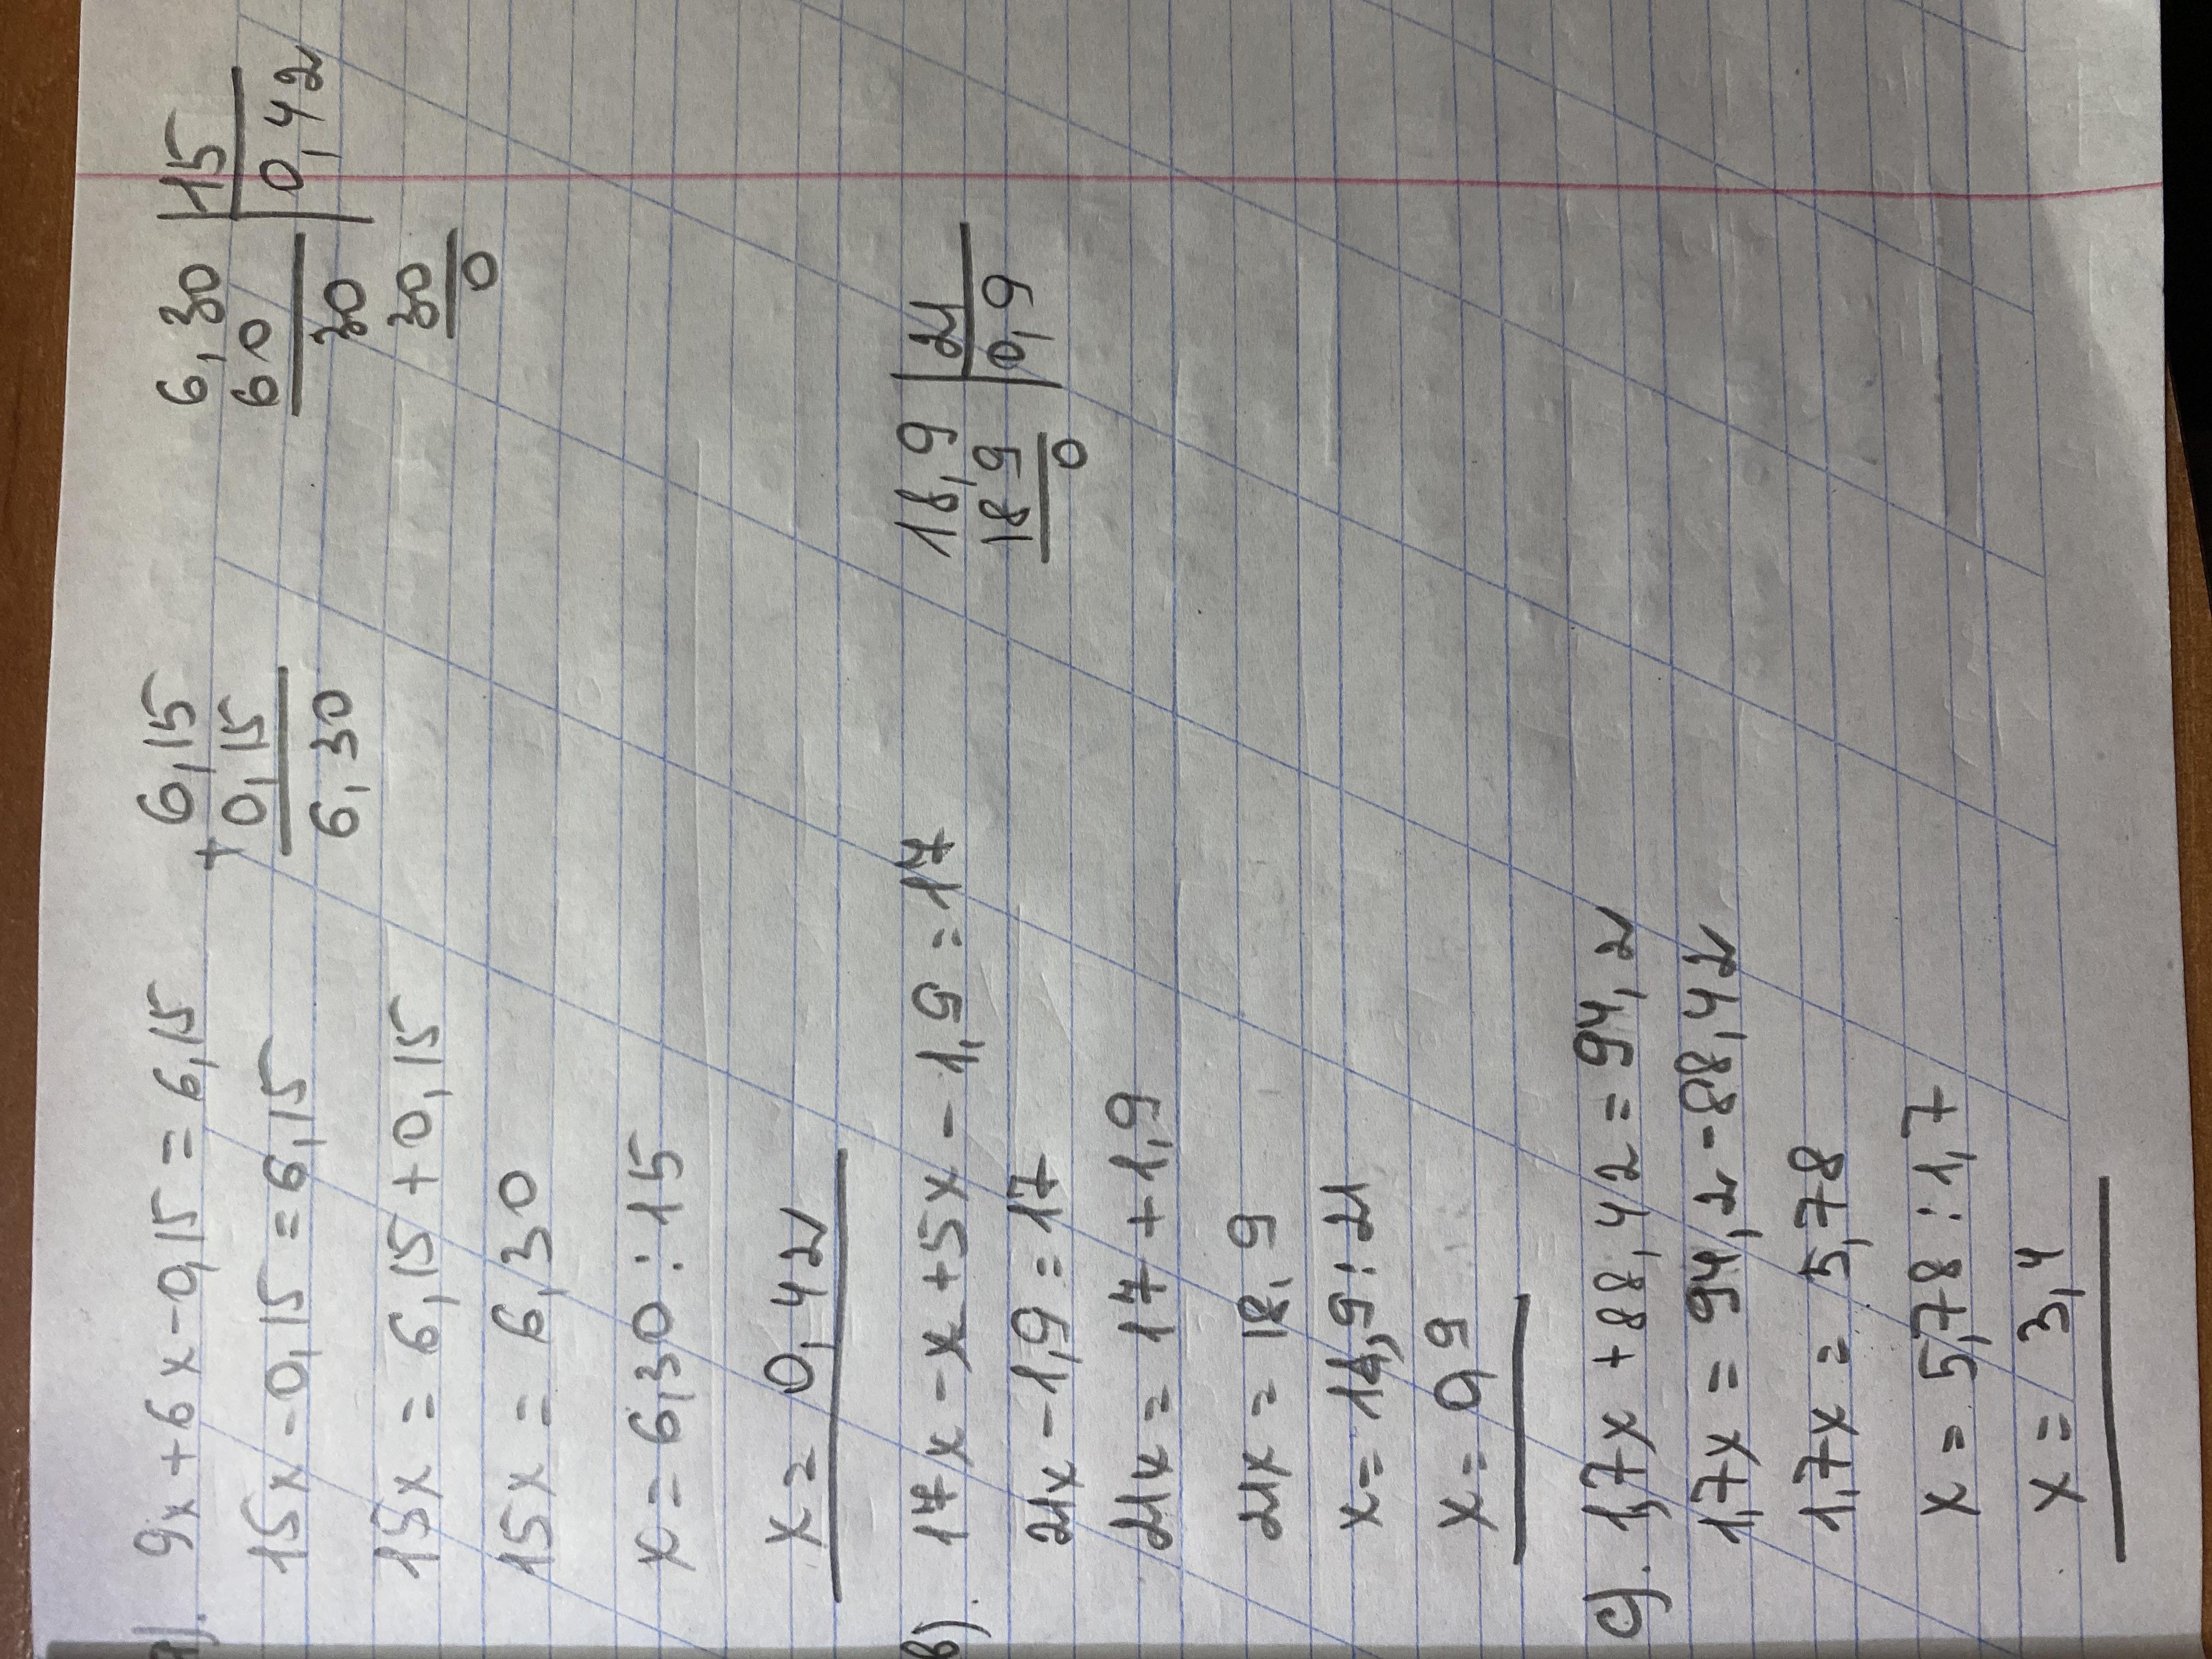 а). 9x + 6x - 0,15 = 6,15
15x - 0,15 = 6,15
15x = 6,15 + 0,15
15x = 6,30
x = 6,30 : 15
x = 0,42
+ 6,15
0,15
6,30
6,30 | 15
60 | 0,42
30
30
0
в). 17x - x + 5x - 1,9 = 17
21x - 1,9 = 17
21x = 17 + 1,9
21x = 18,9
x = 18,9 : 21
x = 0,9
18,9 | 21
18 9 | 0,9
0
с). 1,7x + 88,42 = 94,2
1,7x = 94,2 - 88,42
1,7x = 5,78
x = 5,78 : 1,7
x = 3,4